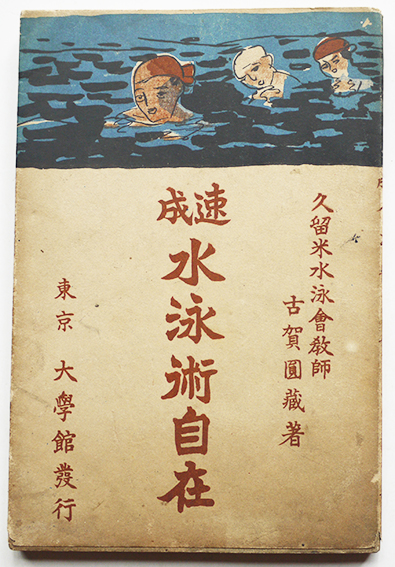 久留米水泳會教師
古賀圓藏著
速成
水泳術自在
東京 大學館發行